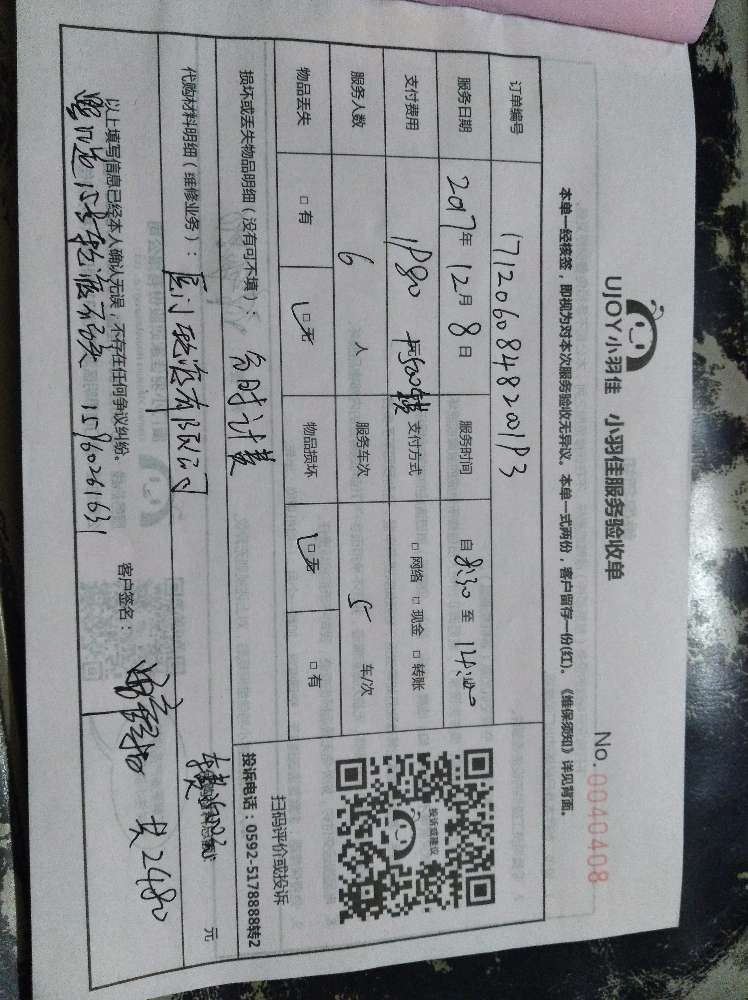 UJOY小羽佳 小羽佳服务验收单
No. 0040408
本单一经核签，即视为对本次服务验收无异议。本单一式两份，客户留存一份(红)。《维保须知》详见背面。
订单编号 17120608482001P3
服务日期 2017年 12月 8日 服务时间 自 8:30 至 12:00
支付费用 1980 支付方式 □ 网络 □ 现金 □ 转账
服务人数 6 人 服务车次 5 车/次
物品丢失 □ 有 □ 无 物品损坏 □ 无 □ 有
投诉或建议
扫码评价或投诉
损坏或丢失物品明细（没有可不填）： 台时计费
投诉电话：0592-5178888转2
代购材料明细（维修业务）： 厦门 有限公司 元
以上填写信息已经本人确认无误，不存在任何争议纠纷。
15号 15860261631
客户签名： 共2480